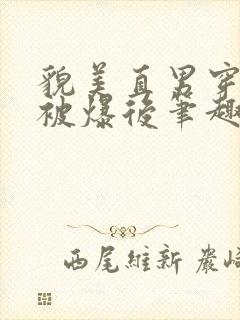 貌美直男穿
被爆後筆趣
西尾維新 嚴崎